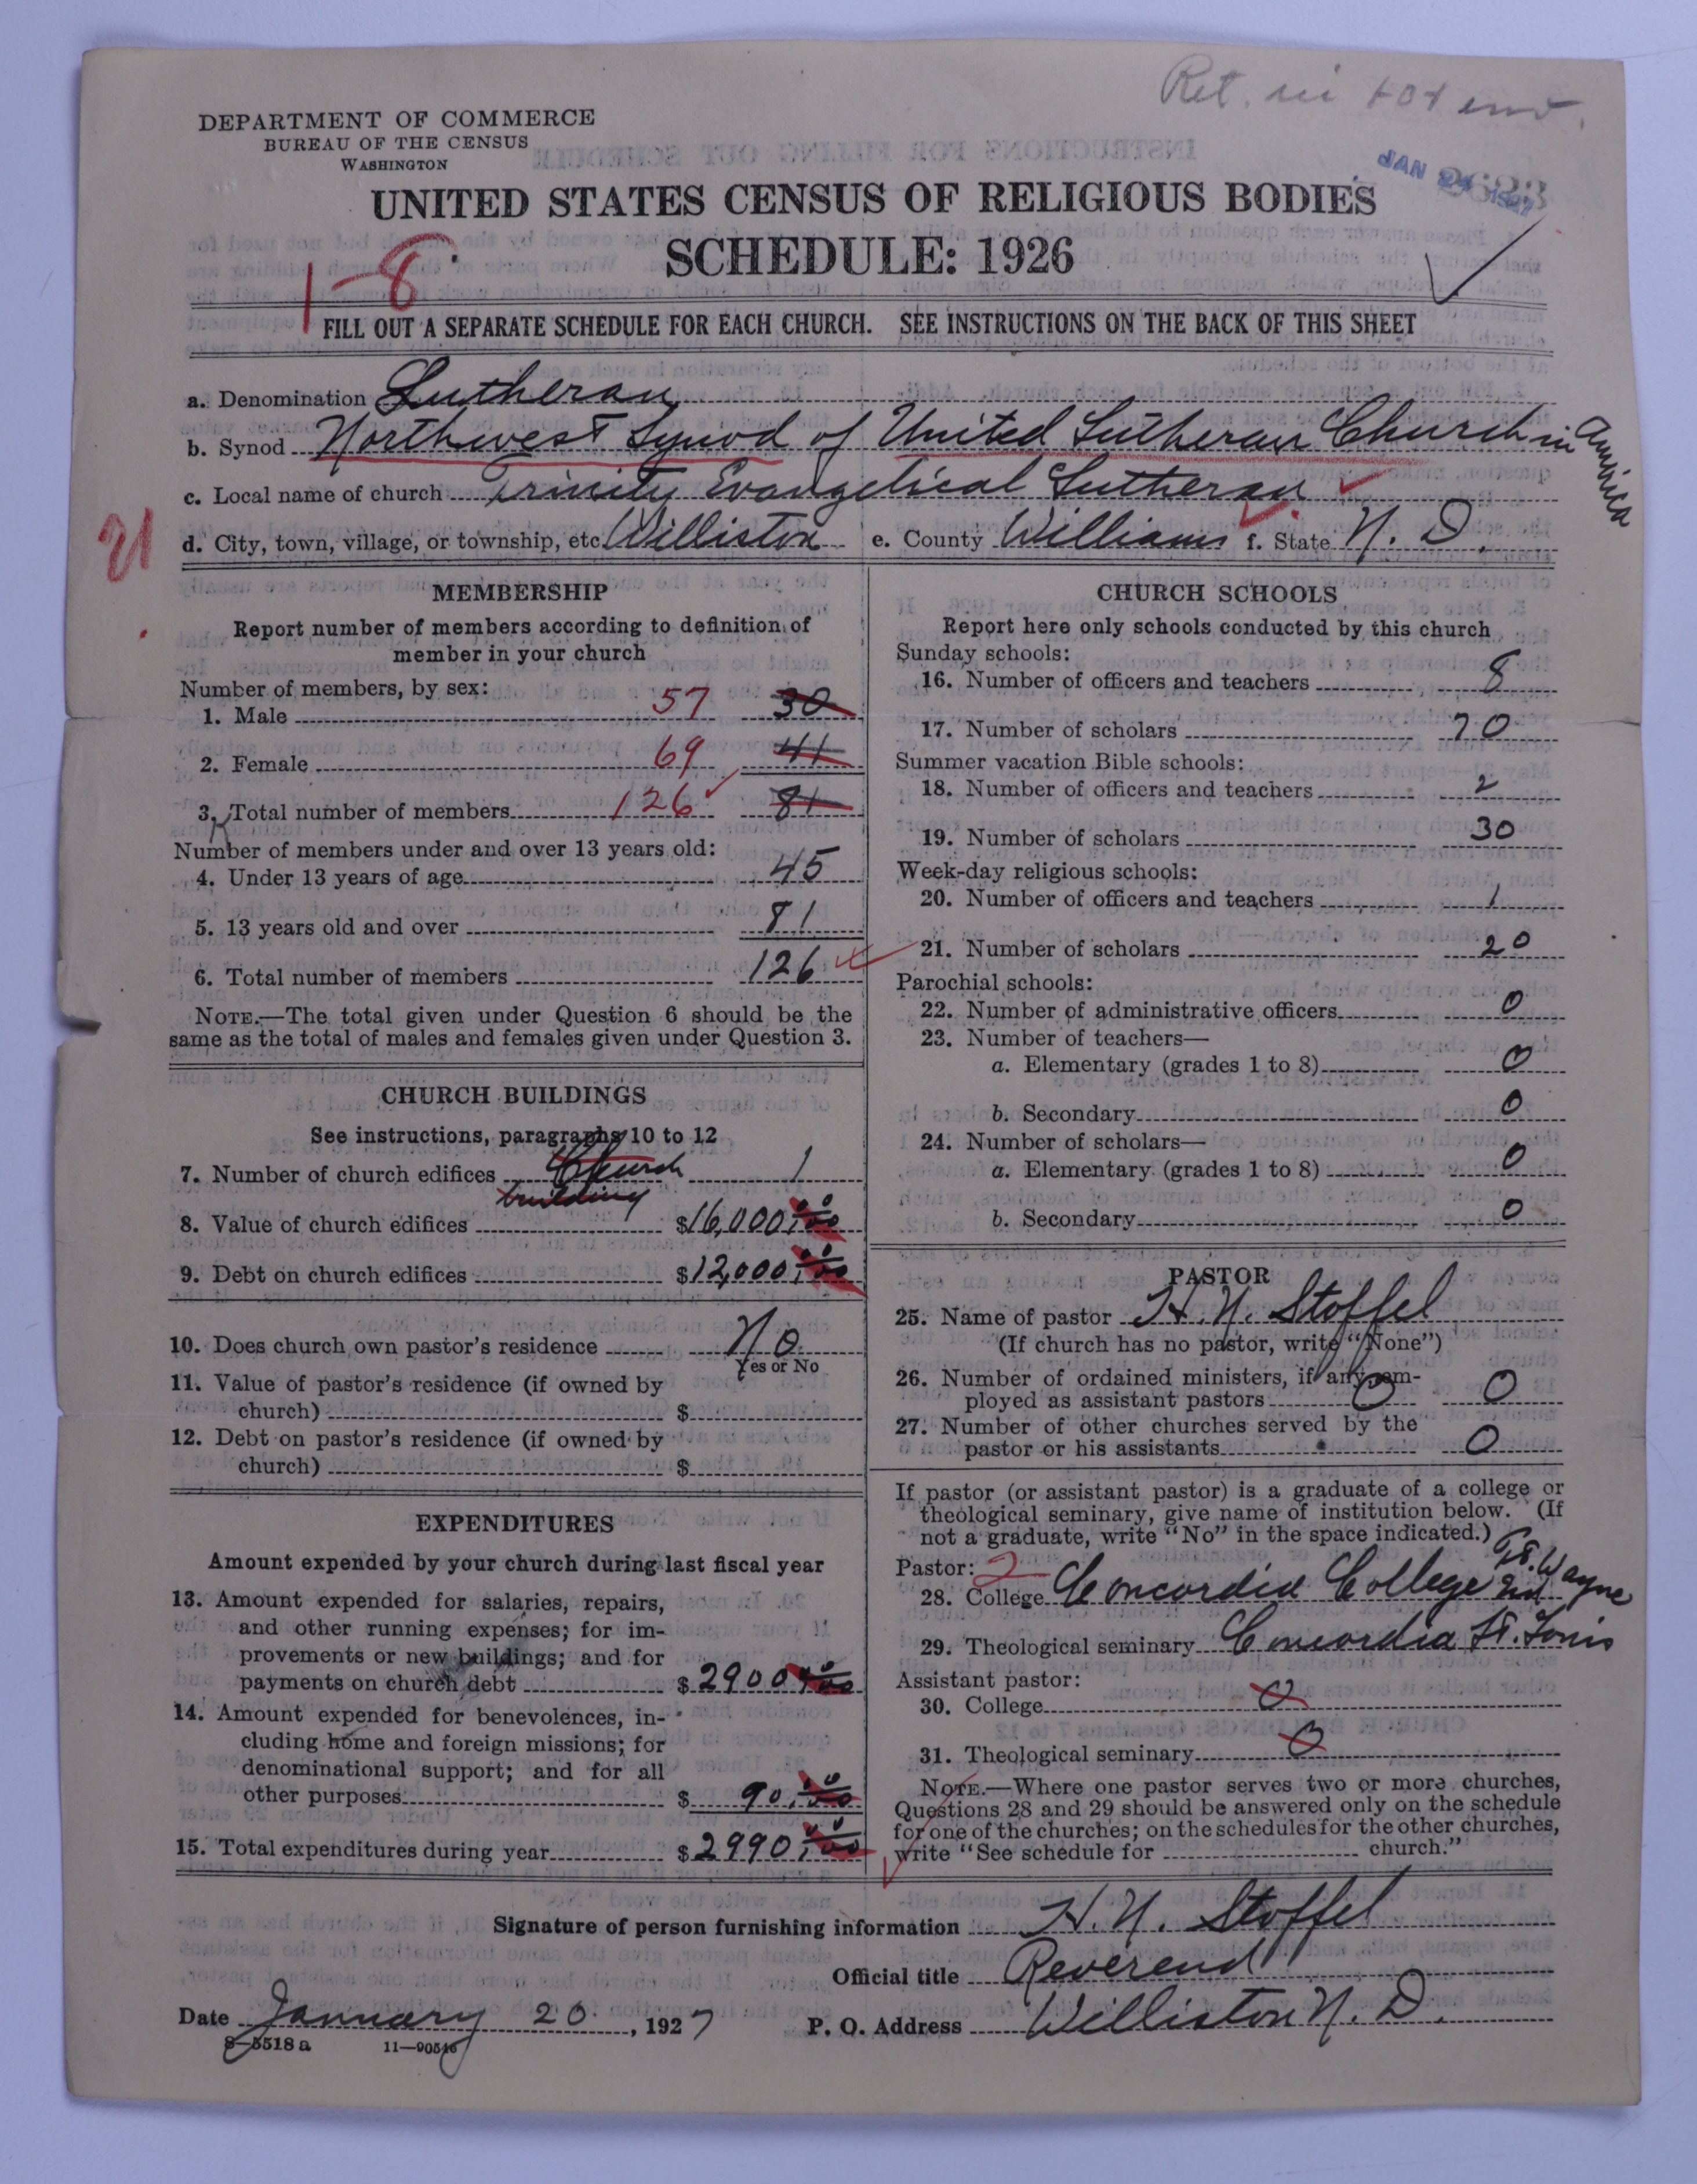 Ret. in
DEPARTMENT OF COMMERCE
BUREAU OF THE CENSUS
WASHINGTON
JAN 24 1927
UNITED STATES CENSUS OF RELIGIOUS BODIES
SCHEDULE: 1926
1-8
FILL OUT A SEPARATE SCHEDULE FOR EACH CHURCH. SEE INSTRUCTIONS ON THE BACK OF THIS SHEET
a. Denomination Lutheran
b. Synod Northwest Synod of United Lutheran Church in America
c. Local name of church Trinity Evangelical Lutheran
d. City, town, village, or township, etc Williston e. County Williams f. State N. D.
MEMBERSHIP
Report number of members according to definition of
member in your church
Number of members, by sex:
1. Male 57 30
2. Female 69 41
3. Total number of members 126 81
Number of members under and over 13 years old:
4. Under 13 years of age 45
5. 13 years old and over 81
6. Total number of members 126
NOTE.—The total given under Question 6 should be the
same as the total of males and females given under Question 3.
CHURCH BUILDINGS
See instructions, paragraphs 10 to 12
7. Number of church edifices Church building 1
8. Value of church edifices $16,000.00
9. Debt on church edifices $12,000.00
10. Does church own pastor's residence No
Yes or No
11. Value of pastor's residence (if owned by
church) $
12. Debt on pastor's residence (if owned by
church) $
EXPENDITURES
Amount expended by your church during last fiscal year
13. Amount expended for salaries, repairs,
and other running expenses; for im-
provements or new buildings; and for
payments on church debt $2900.00
14. Amount expended for benevolences, in-
cluding home and foreign missions; for
denominational support; and for all
other purposes $ 90.00
15. Total expenditures during year $2990.00
CHURCH SCHOOLS
Report here only schools conducted by this church
Sunday schools:
16. Number of officers and teachers 8
17. Number of scholars 70
Summer vacation Bible schools:
18. Number of officers and teachers 2
19. Number of scholars 30
Week-day religious schools:
20. Number of officers and teachers 1
21. Number of scholars 20
Parochial schools:
22. Number of administrative officers 0
23. Number of teachers—
a. Elementary (grades 1 to 8) 0
b. Secondary 0
24. Number of scholars—
a. Elementary (grades 1 to 8) 0
b. Secondary 0
PASTOR
25. Name of pastor H. N. Stoffel
(If church has no pastor, write "None")
26. Number of ordained ministers, if any, em-
ployed as assistant pastors 0 0
27. Number of other churches served by the
pastor or his assistants 0
If pastor (or assistant pastor) is a graduate of a college or
theological seminary, give name of institution below. (If
not a graduate, write "No" in the space indicated.)
Pastor: 2
28. College Concordia College Ft. Wayne Ind
29. Theological seminary Concordia St. Louis
Assistant pastor:
30. College 0
31. Theological seminary 0
NOTE.—Where one pastor serves two or more churches,
Questions 28 and 29 should be answered only on the schedule
for one of the churches; on the schedules for the other churches,
write "See schedule for church."
Signature of person furnishing information H. N. Stoffel
Official title Reverend
Date January 20, 1927 P. O. Address Williston N. D.
8—5518 a 11—90546